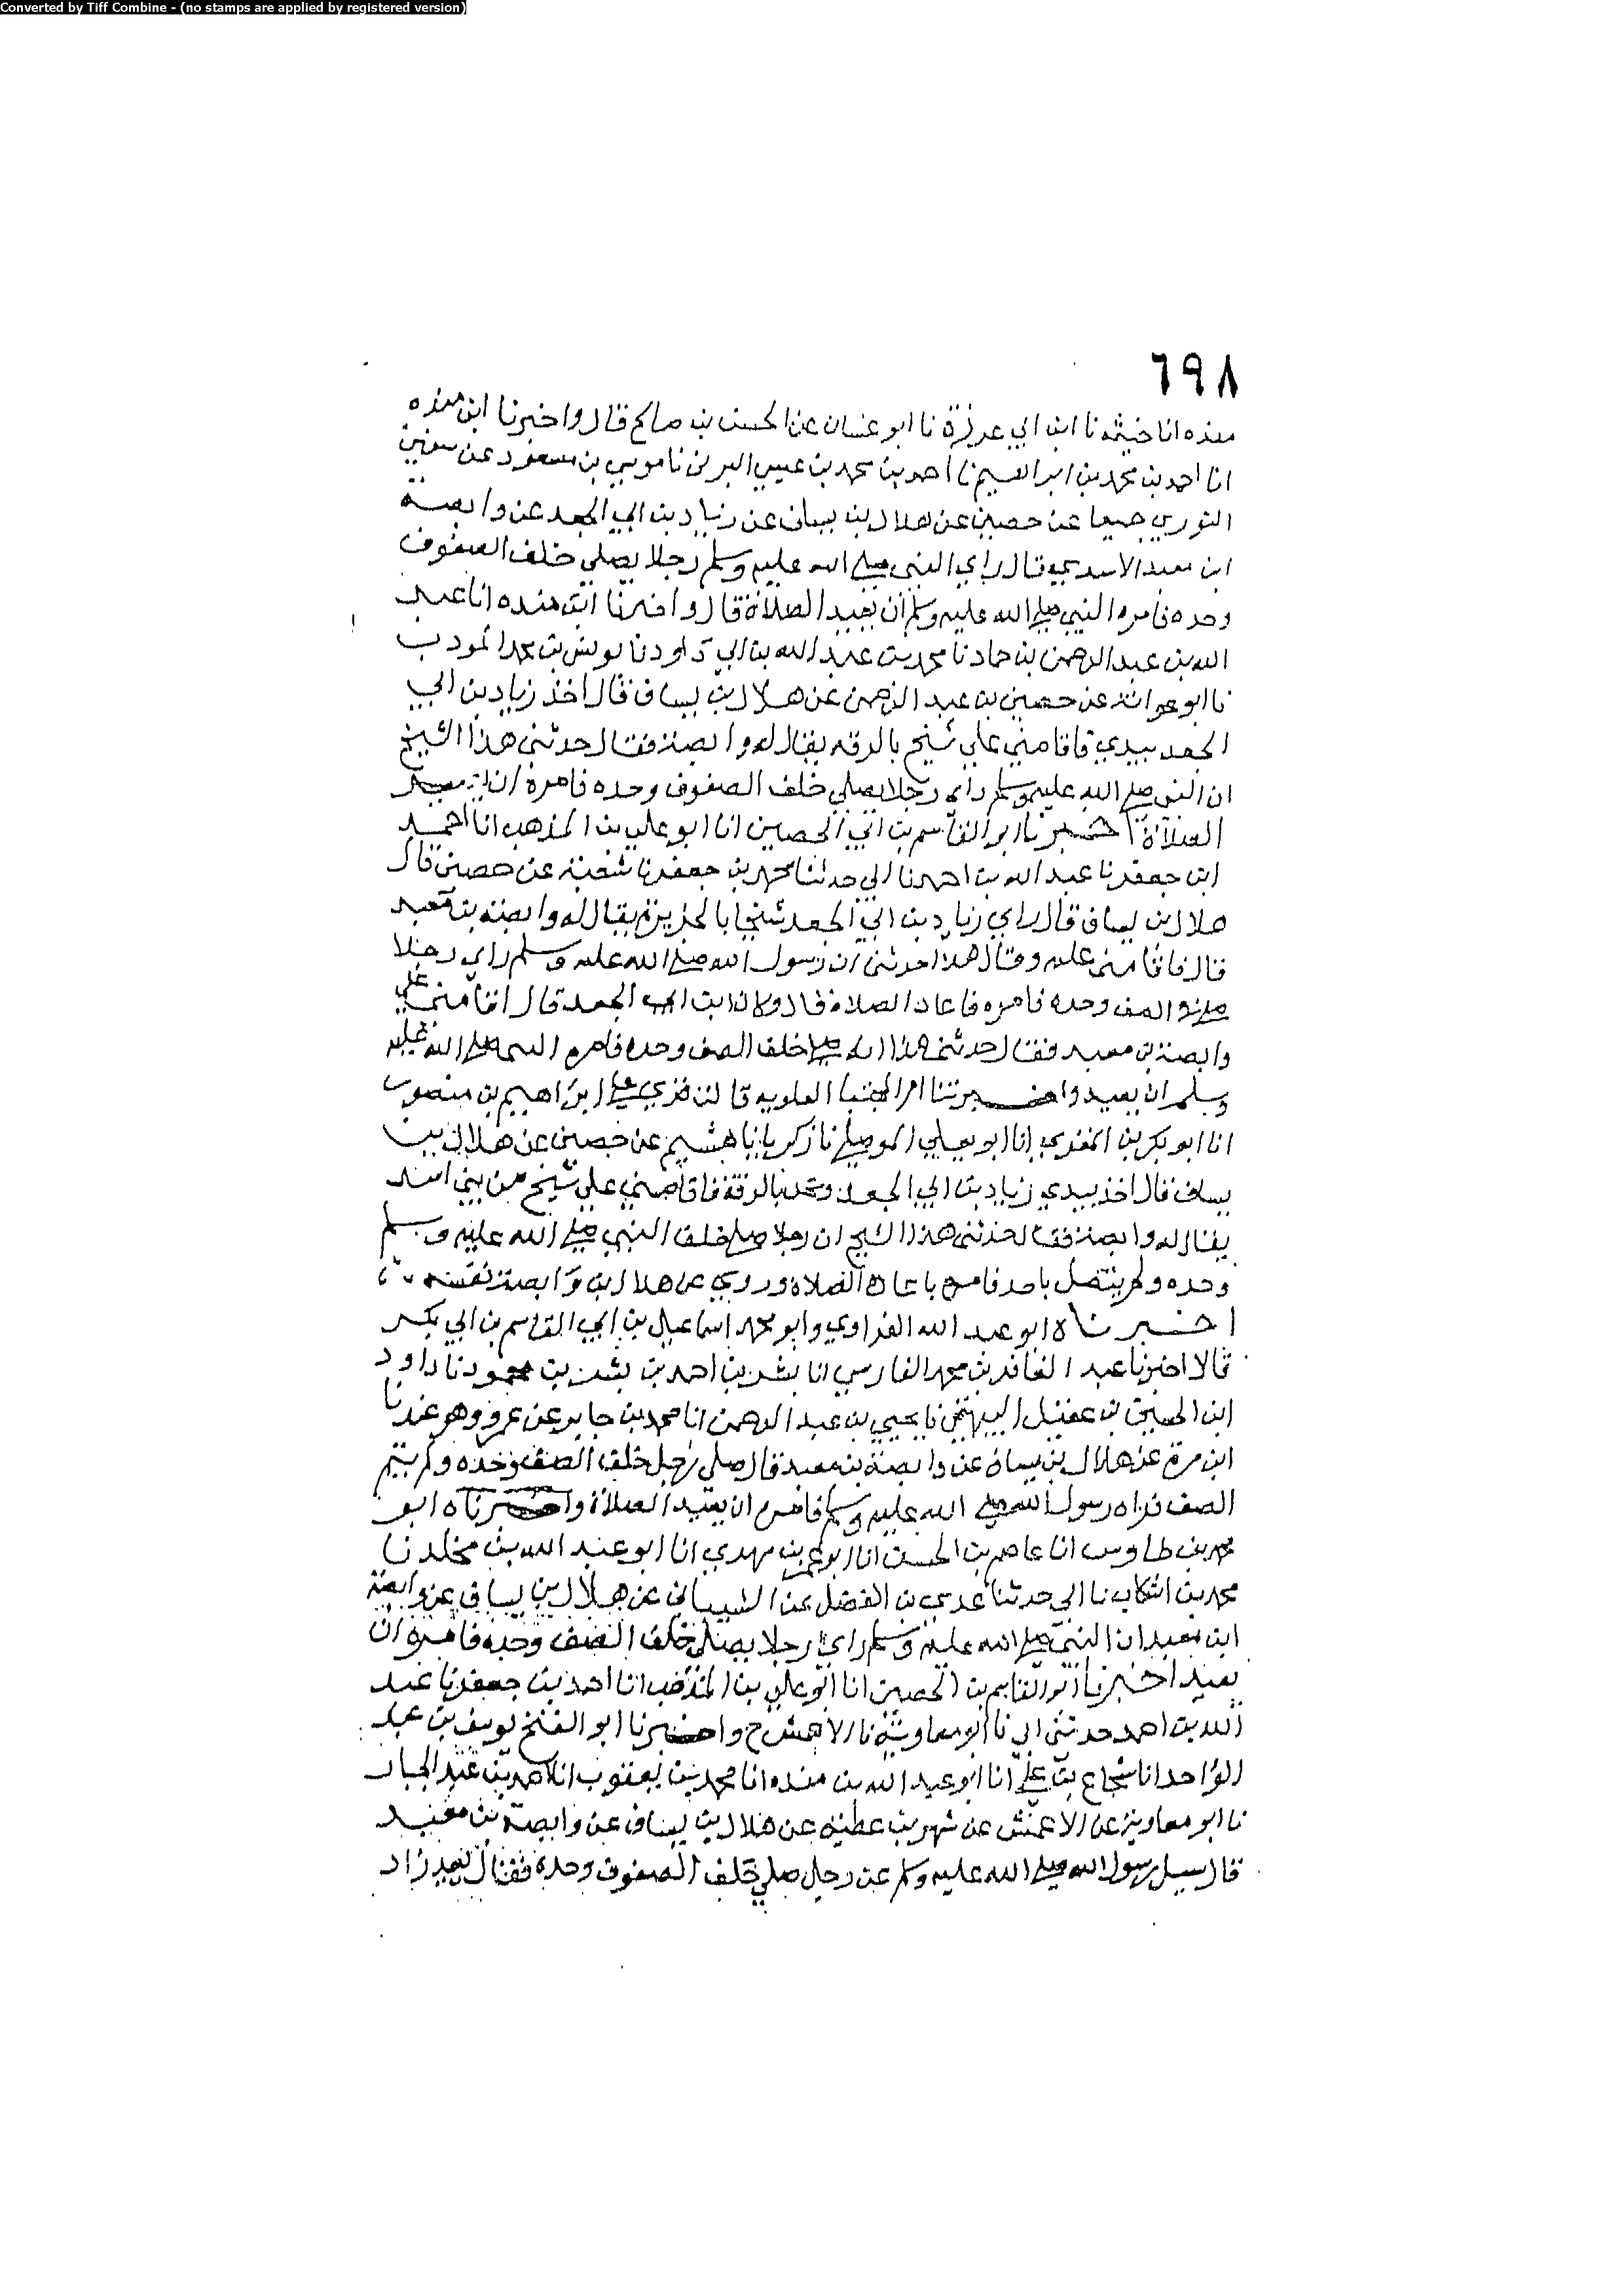 Converted by Tiff Combine - (no stamps are applied by registered version)
٦٩٨
منده انا خيثمة نا ابن ابي عرزة نا ابو غسان عن الحسن بن صالح قال واخبرنا ابن منده
انا احمد بن محمد بن ابراهيم نا احمد بن محمد بن عيسى البرتي نا موسى بن مسعود عن سفين
الثوري جميعا عن حصين عن هلال بن يساف عن زياد بن ابي الجعد عن وابصة
ابن معبد الاسدي قال راي النبي صلى الله عليه وسلم رجلا يصلي خلف الصفوف
وحده فامره النبي صلى الله عليه وسلم ان يعيد الصلاة قال واخبرنا ابن منده انا عبد
الله بن عبد الرحمن بن حماد نا محمد بن عبد الله بن ابي داود نا يونس بن محمد المودب
نا ابو عوانة عن حصين بن عبد الرحمن عن هلال بن يساف قال اخذ زياد بن ابي
الجعد بيدي فاقامني علي شيخ بالرقه يقال له وابصة فقال حدثني هذا الشيخ
ان النبي صلى الله عليه وسلم راي رجلا يصلي خلف الصفوف وحده فامره ان يعيد
الصلاة اخبرنا ابو القاسم بن ابي الحصين انا ابو علي بن المذهب انا احمد
ابن جعفر نا عبد الله بن احمد نا ابي حدثنا محمد بن جعفر نا شعبة عن حصين قال
هلال بن يساف قال راي زياد بن ابي الجعد شيخا بالجزيرة يقال له وابصة بن معبد
قال فاقامني عليه وقال هذا حدثني ان رسول الله صلى الله عليه وسلم راي رجلا
الصف وحده فامره فاعاد الصلاة قال وكان ابن ابي الجعد قال اقامني علي
وابصة بن معبد فقال حدثني هذا انه صلى خلف الصف وحده فامره النبي صلى الله عليه
وسلم ان يعيد واخبرتنا ام المجتبا العلويه قالت قري علي ابراهيم بن منصور
انا ابو بكر بن المقري انا ابو يعلي الموصلي نا زكريا نا هشيم عن حصين عن هلال بن
يساف قال اخذ بيدي زياد بن ابي الجعد ونحن بالرقة فاقامني علي شيخ من بني اسد
يقال له وابصة فقال حدثني هذا الشيخ ان رجلا صلى خلف النبي صلى الله عليه وسلم
وحده ولم يتصل باحد فامره باعادة الصلاة وروي عن هلال بن وابصة نفسه
اخبرناه ابو عبد الله الفراوي وابو محمد اسماعيل بن ابي القاسم بن ابي بكر
قالا اخبرنا عبد الغافر بن محمد الفارسي انا بشر بن احمد بن بشر بن محمود نا داود
ابن الحسين بن عقيل البيهقي نا يحيي بن عبد الرحمن انا محمد بن جابر عن عمرو وهو عندنا
ابن مرة عن هلال بن يساف عن وابصة بن معبد قال صلى رجل خلف الصف وحده ولم يتم
الصف فراه رسول الله صلى الله عليه وسلم فامره ان يعيد الصلاة واخبرناه ابو
محمد بن طاوس انا عاصم بن الحسن انا ابو عمر بن مهدي انا ابو عبد الله بن مخلد نا
محمد بن اشكاب نا ابي حدثنا عدي بن الفضل عن الشيباني عن هلال بن يساف عن وابصة
ابن معبد ان النبي صلى الله عليه وسلم راي رجلا يصلى خلف الصف وحده فامره ان
يعيد اخبرنا ابو القاسم بن الحصين انا ابو علي بن المذهب انا احمد بن جعفر نا عبد
الله بن احمد حدثني ابي نا ابو معاوية نا الاعمش ح واخبرنا ابو الفتح يوسف بن عبد
الواحد انا شجاع بن علي انا ابو عبد الله بن منده انا محمد بن يعقوب انا احمد بن عبد الجبار
نا ابو معاوية عن الاعمش عن شهر بن عطيه عن هلال بن يساف عن وابصة بن معبد
قال سيل رسول الله صلى الله عليه وسلم عن رجل صلي خلف الصفوف وحده فقال يعيد زاد